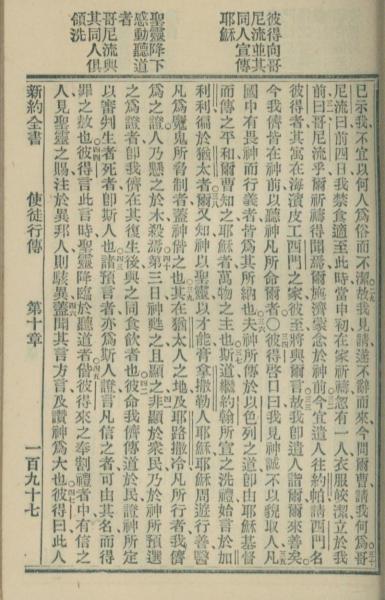 彼得向哥
尼流並其
同人宣傳
耶穌
聖靈降下
感動聽道
者
哥尼流與
其同人俱
領洗
已示我不宜以何人爲俗而不潔故我見請遂不辭而來今問爾曹請我何哥
尼流曰前四日我禁食適至此時當申初在家祈禱忽有一人衣服皎潔立於我
前曰哥尼流乎爾祈禱得聞爾施濟蒙念於神前今宜遣人往約帕請西門名
彼得者其寓在海濱皮工西門之家彼至將與爾言故我卽遣人詣爾爾來善矣
今我儕皆在神前以聽神凡所命爾者〇彼得啓口曰我見神誠不以貌取人凡
國中有畏神而行義者皆爲其所納也夫神所傳於以色列之道卽由耶穌基督
而傳之平和爾曹知之耶穌者萬物之主也斯道繼約翰所宣之洗禮始言於加
利利徧於猶太者爾又知神以聖靈以才能膏拿撒勒人耶穌耶穌周遊行善醫
凡爲魔鬼所脅制者蓋神偕之也其在猶太人之地及耶路撒冷凡所行者我儕
爲之證人乃懸之於木殺焉第三日神甦之且顯之非顯於衆民乃於神所預選
之爲證者卽我儕在其復生後與之同食飲者也彼命我儕傳道於民證神所定
以審判生者死者卽斯人也諸預言者亦爲斯人證言凡信之者可由其名而得
罪之赦也彼得言此言時聖靈降臨於聽道者偕彼得來之奉割禮者中有信之
人見聖靈之賜注於異邦人則駭異蓋聞其言方言及讚神爲大也彼得曰此人
新約全書 使徒行傳 第十章 一百九十七